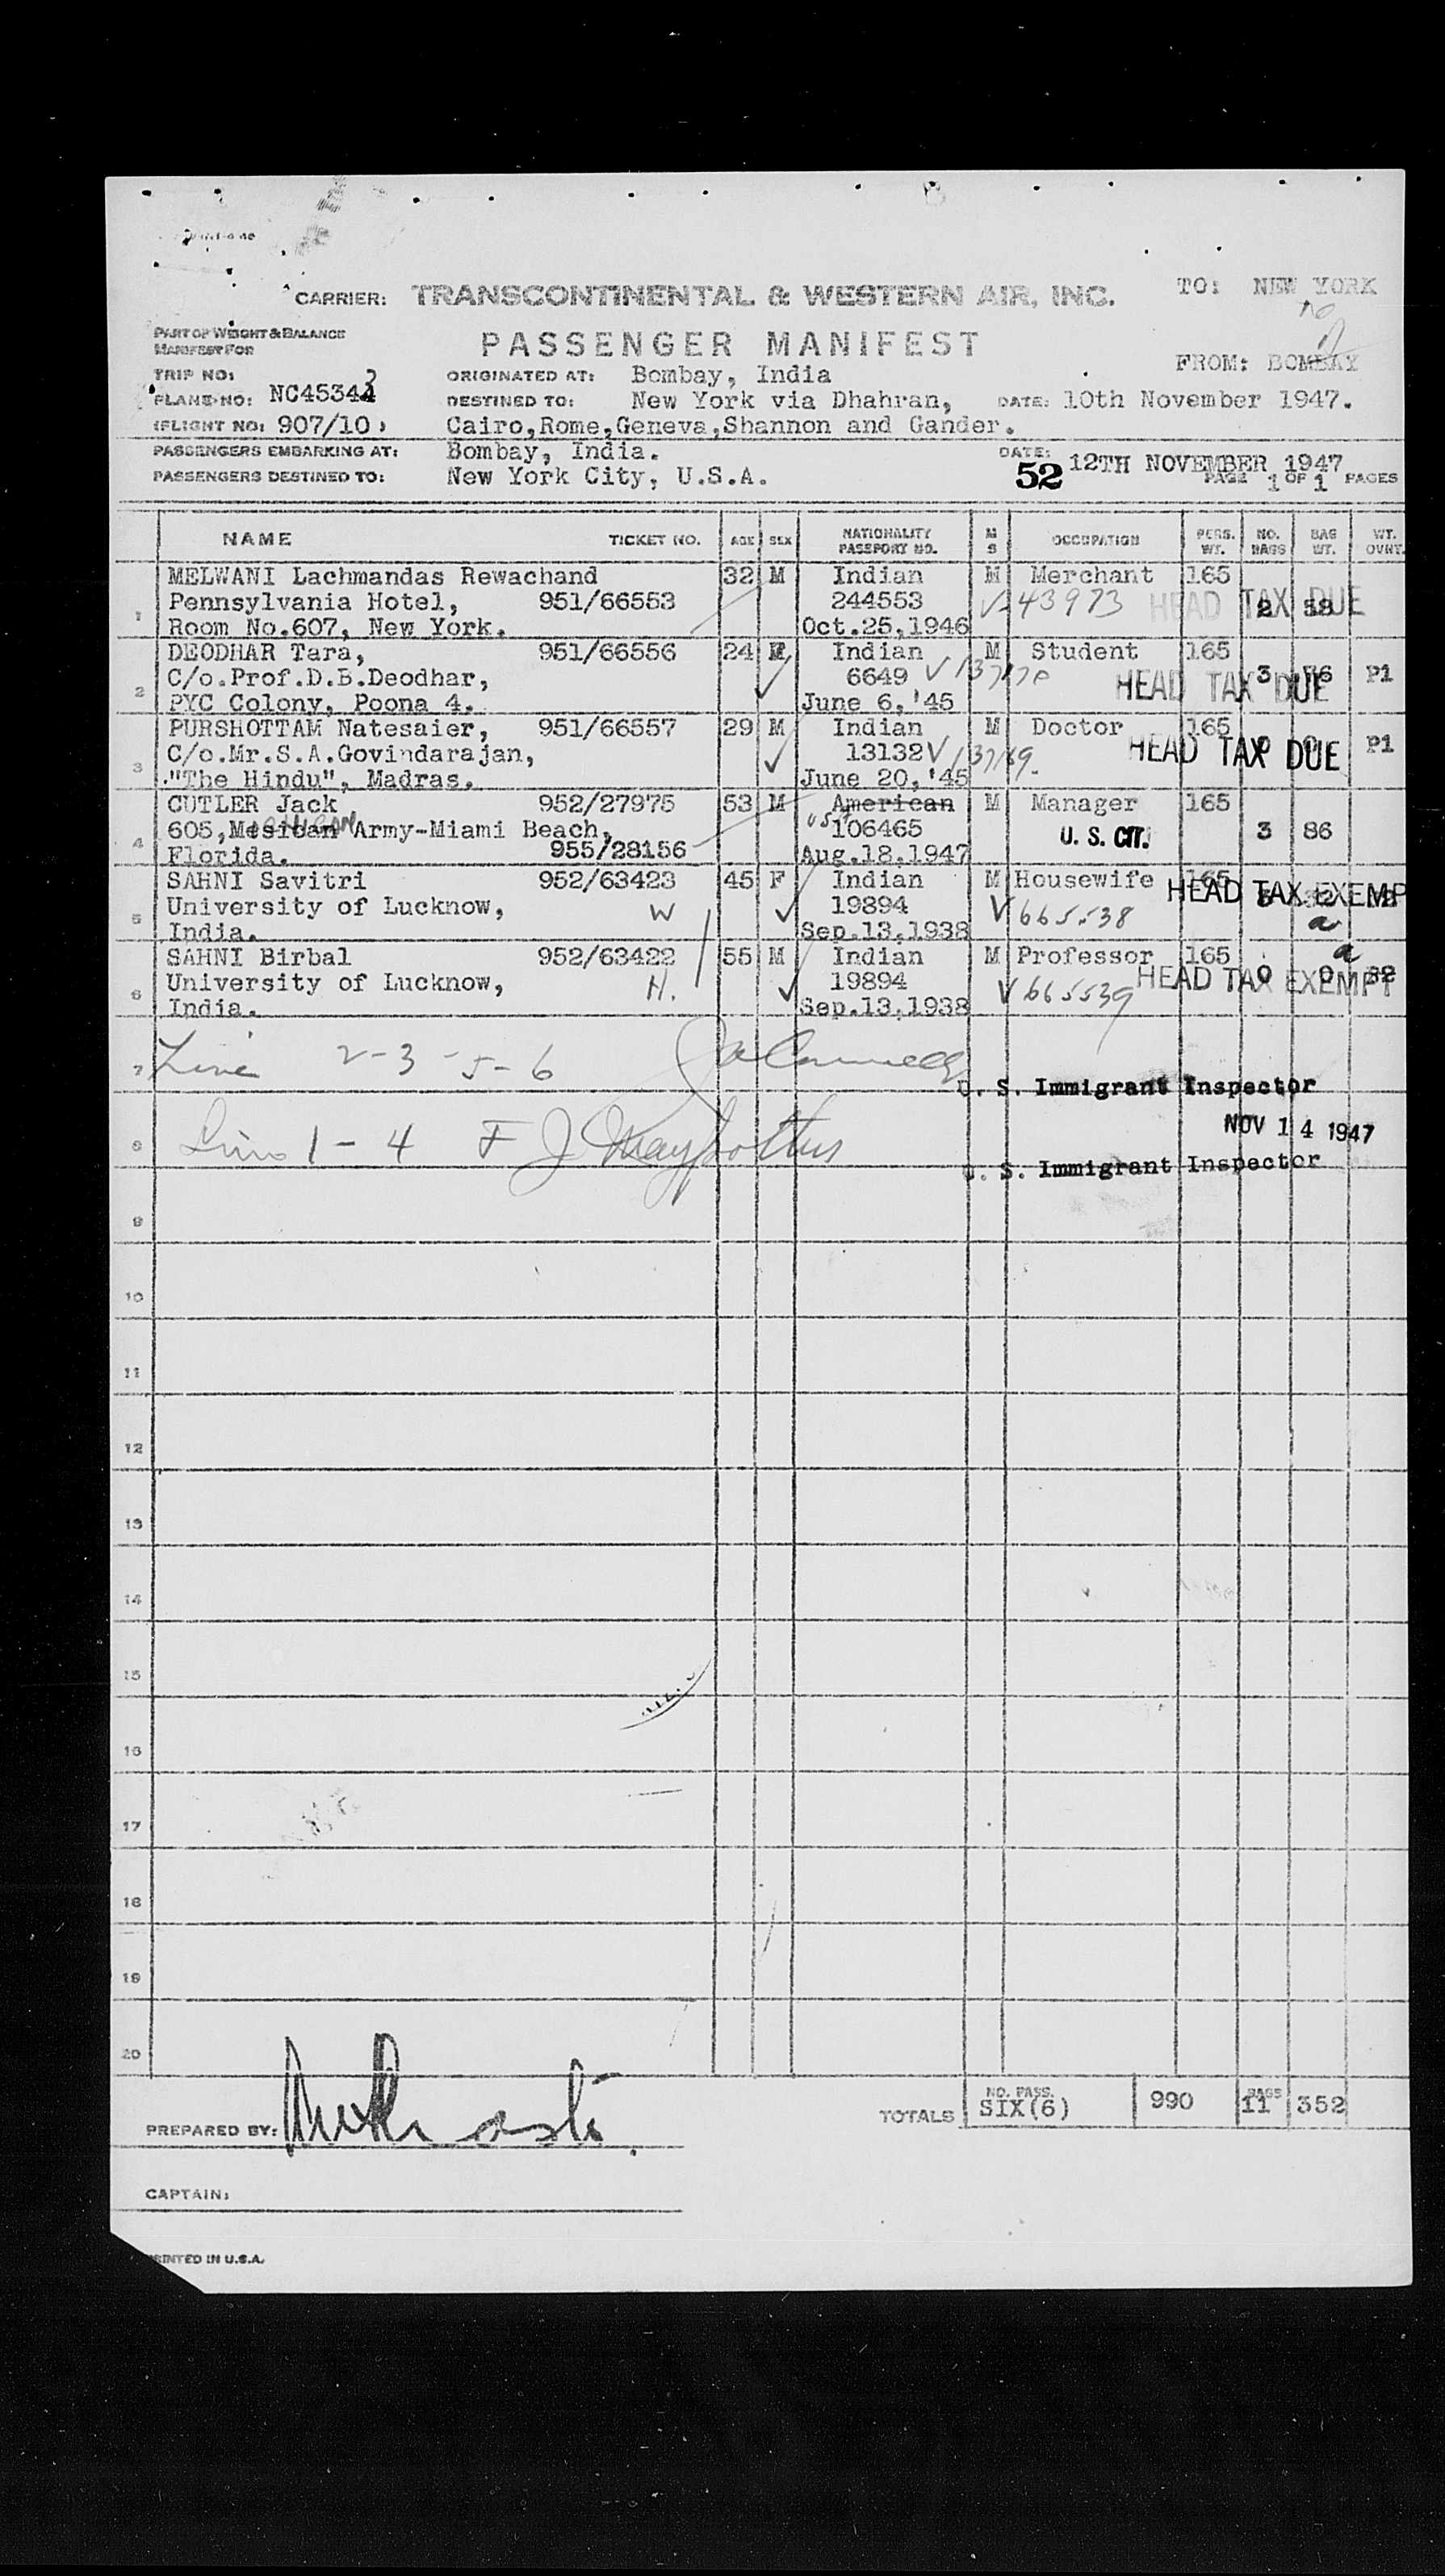 CARRIER: TRANSCONTINENTAL & WESTERN AIR, INC. TO: NEW YORK
PART OF WEIGHT & BALANCE
MANIFEST FOR
PASSENGER MANIFEST
FROM: BOMBAY
TRIP NO: ORIGINATED AT: Bombay, India
PLANE NO: NC45343 DESTINED TO: New York via Dhahran, DATE: 10th November 1947.
(FLIGHT NO: 907/10) Cairo,Rome,Geneva,Shannon and Gander.
PASSENGERS EMBARKING AT: Bombay, India. DATE: 12TH NOVEMBER 1947
PASSENGERS DESTINED TO: New York City, U.S.A. 52 PAGE 1 OF 1 PAGES
NAME TICKET NO. AGE SEX NATIONALITY PASSPORT NO. M S OCCUPATION PERS. WT. NO. BAGS BAG WT. WT. OVNT.
MELWANI Lachmandas Rewachand 32 M Indian M Merchant 165
1 Pennsylvania Hotel, 951/66553 244553 V-43973 HEAD TAX DUE 2 58
Room No.607, New York. Oct.25,1946
DEODHAR Tara, 951/66556 24 F Indian M Student 165
2 C/o.Prof.D.B.Deodhar, 6649 V HEAD TAX DUE 3 76 P1
PYC Colony, Poona 4. June 6,'45
PURSHOTTAM Natesaier, 951/66557 29 M Indian M Doctor 165
3 C/o.Mr.S.A.Govindarajan, 13132 V HEAD TAX DUE 0 0 P1
"The Hindu", Madras. June 20,'45
CUTLER Jack 952/27975 53 M American M Manager 165
4 605,Mesican Army-Miami Beach, USA 106465 U. S. CIT. 3 86
Florida. 955/28156 Aug.18.1947
SAHNI Savitri 952/63423 45 F Indian M Housewife 165
5 University of Lucknow, W 19894 V665538 HEAD TAX EXEMP
India. Sep.13,1938
SAHNI Birbal 952/63422 55 M Indian M Professor 165
6 University of Lucknow, H. 19894 V665539 HEAD TAX EXEMPT 0 0
India. Sep.13,1938
7 Line 2-3-5-6
U. S. Immigrant Inspector
NOV 14 1947
8 Line 1-4 F J
U. S. Immigrant Inspector
9
10
11
12
13
14
15
16
17
18
19
20
TOTALS NO. PASS. SIX(6) 990 BAGS 11 352
PREPARED BY:
CAPTAIN:
PRINTED IN U.S.A.